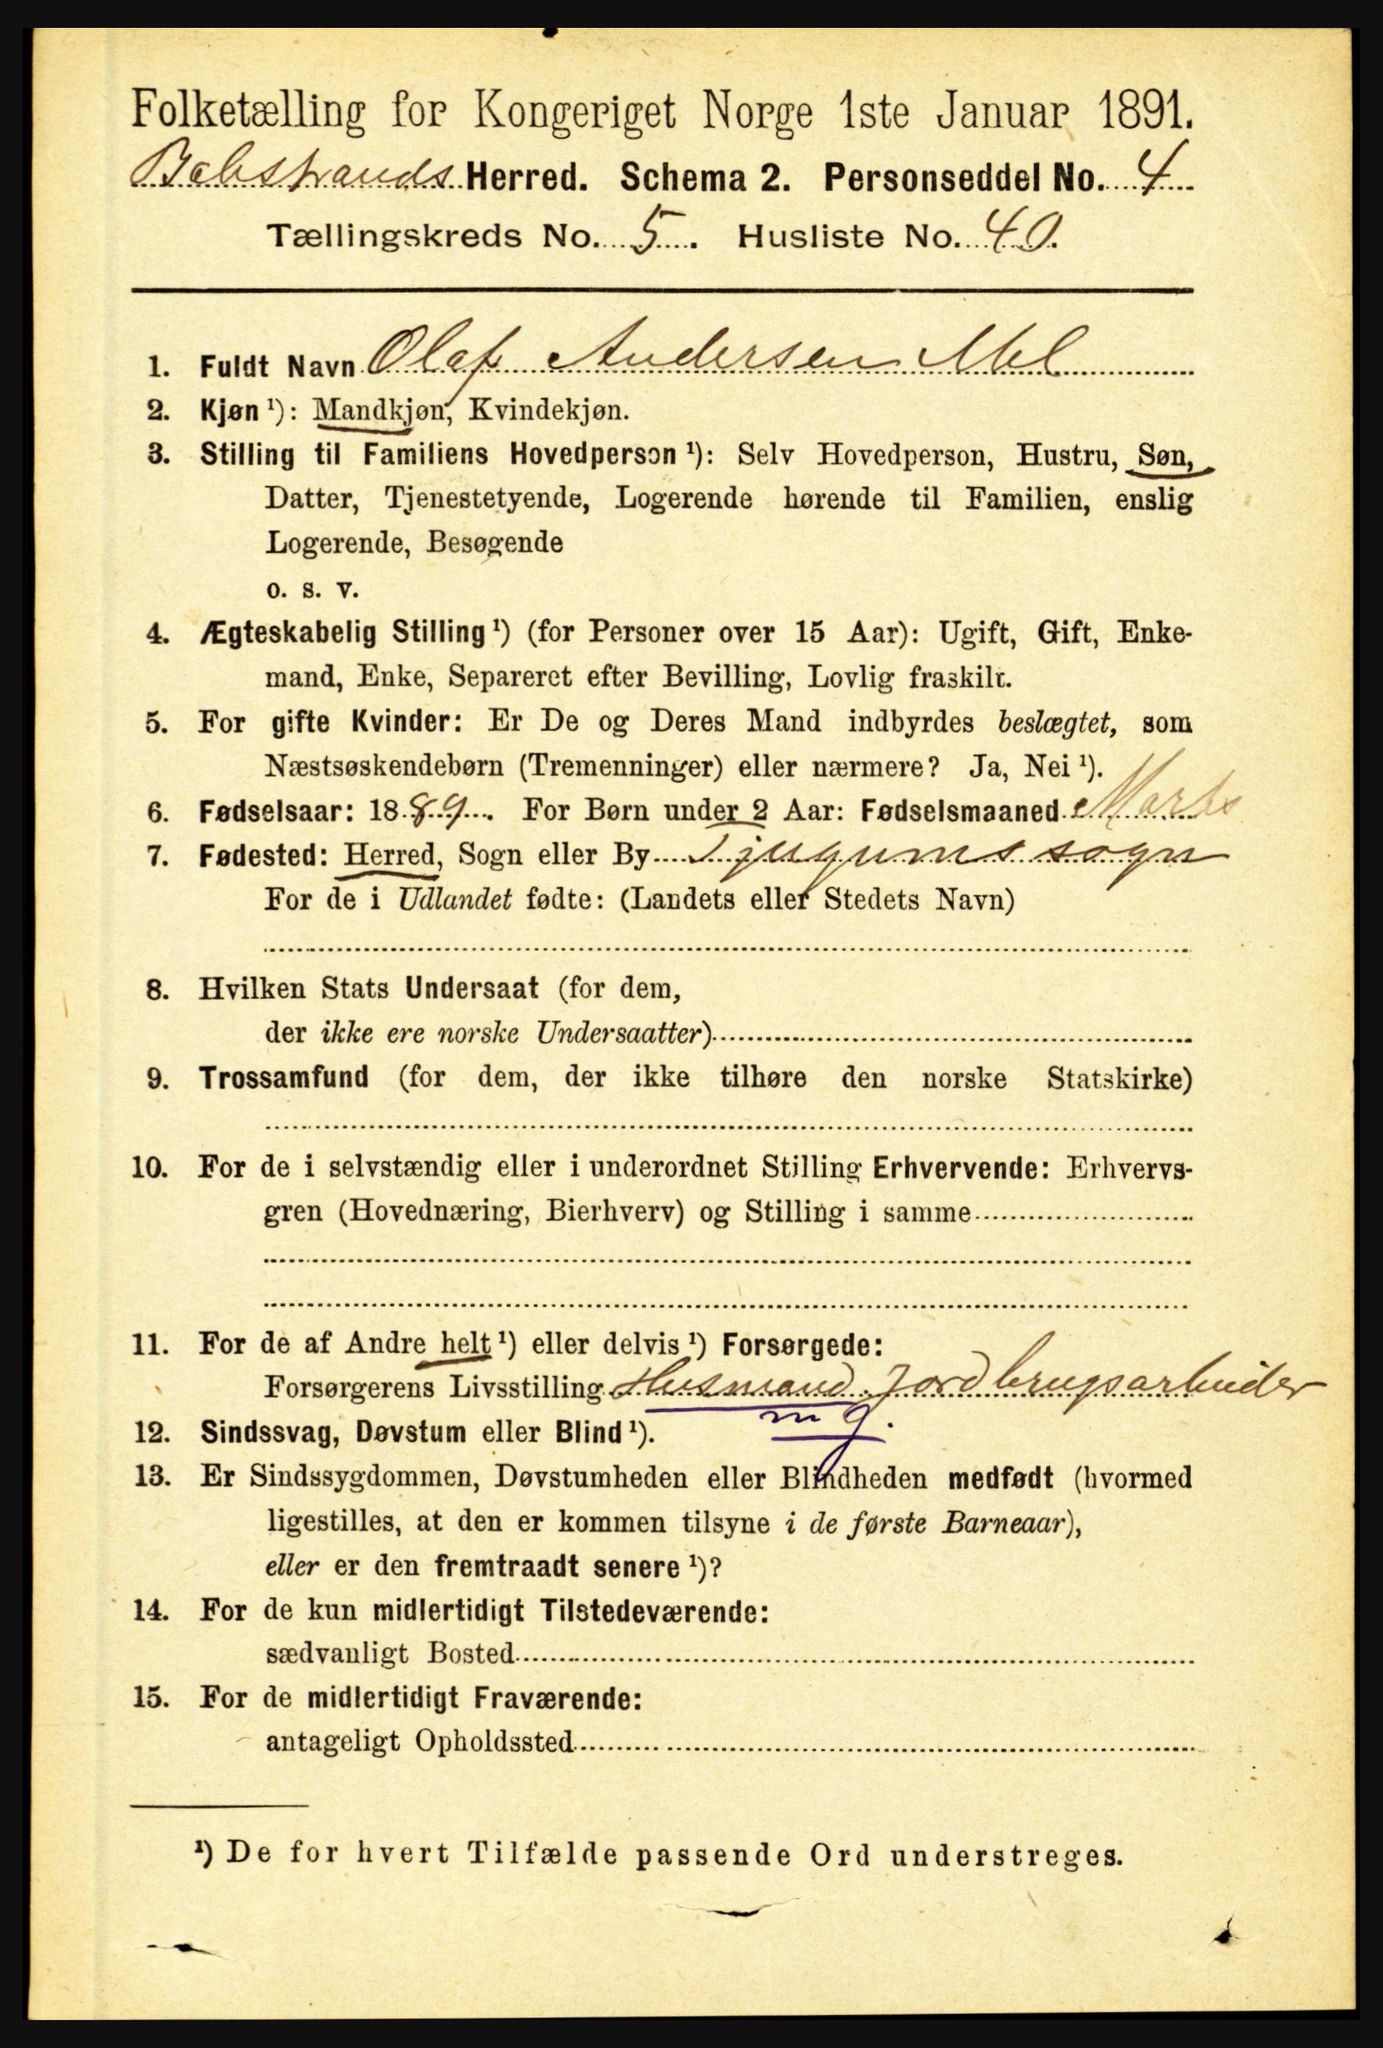 Folketælling for Kongeriget Norge 1ste Januar 1891.
Balestrands Herred. Schema 2. Personseddel No. 4
Tællingskreds No. 5. Husliste No. 40.
1. Fuldt Navn Olaf Andersen Mel
2. Kjøn¹): Mandkjøn, Kvindekjøn.
3. Stilling til Familiens Hovedperson¹): Selv Hovedperson, Hustru, Søn,
Datter, Tjenestetyende, Logerende hørende til Familien, enslig
Logerende, Besøgende
o. s. v.
4. Ægteskabelig Stilling¹) (for Personer over 15 Aar): Ugift, Gift, Enke-
mand, Enke, Separeret efter Bevilling, Lovlig fraskilt.
5. For gifte Kvinder: Er De og Deres Mand indbyrdes beslægtet, som
Næstsøskendebørn (Tremenninger) eller nærmere? Ja, Nei¹).
6. Fødselsaar: 1889. For Børn under 2 Aar: Fødselsmaaned Marts
7. Fødested: Herred, Sogn eller By Tjugums sogn
For de i Udlandet fødte: (Landets eller Stedets Navn)
8. Hvilken Stats Undersaat (for dem,
der ikke ere norske Undersaatter)
9. Trossamfund (for dem, der ikke tilhøre den norske Statskirke)
10. For de i selvstændig eller i underordnet Stilling Erhvervende: Erhvervs-
gren (Hovednæring, Bierhverv) og Stilling i samme
11. For de af Andre helt¹) eller delvis¹) Forsørgede:
Forsørgerens Livsstilling Husmand Jordbrugsarbeider
m j.
12. Sindssvag, Døvstum eller Blind¹).
13. Er Sindssygdommen, Døvstumheden eller Blindheden medfødt (hvormed
ligestilles, at den er kommen tilsyne i de første Barneaar),
eller er den fremtraadt senere¹)?
14. For de kun midlertidigt Tilstedeværende:
sædvanligt Bosted
15. For de midlertidigt Fraværende:
antageligt Opholdssted
¹) De for hvert Tilfælde passende Ord understreges.